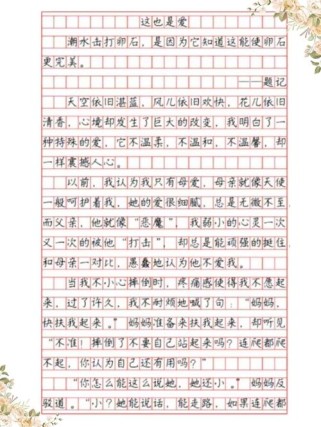 这也是爱
潮水击打卵石，是因为它知道这能使卵石
更完美。
——题记
天空依旧湛蓝，风儿依旧欢快，花儿依旧
清香，心境却发生了巨大的改变，我明白了一
种特殊的爱，它不温柔，不温和，不温馨，却
一样震撼人心。
以前，我认为我只有母爱，母亲就像天使
一般呵护着我，她的爱很细腻，总是无微不至
而父亲，他就像“恶魔”，我弱小的心灵一次
又一次的被他“打击”，却总是能顽强的挺住
和母亲一对比，愚蠢地认为他不爱我。
当我不小心摔倒时，疼痛感使得我不愿起
来，过了许久，我不耐烦地喊了句：“妈妈，
快扶我起来。”妈妈准备来扶我起来，却听见
“不准！摔倒了不要自己站起来吗？连爬都爬
不起，你认为自己还有用吗？”
“你怎么能这么说她，她还小。”妈妈反
驳道。“小？她能说话，能走路，如果连爬都